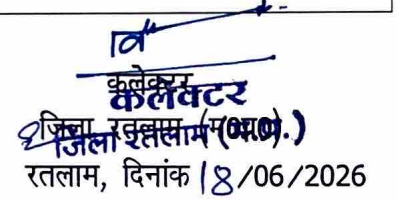 कलेक्टर
कलेक्टर
जिला रतलाम (म०प्र०)
जिला रतलाम (म.प्र.)
रतलाम, दिनांक 18/06/2026